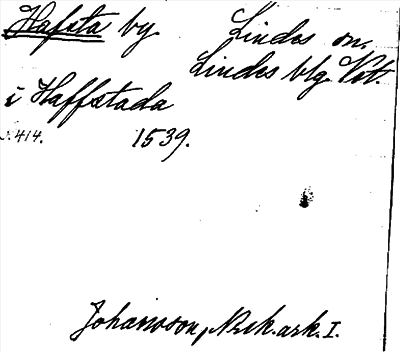 Hafsta by Lindes sn,
Lindes blg Vstl.
i Haffstada
s. 414. 1539.
Johansson, Nrik. ark. I.